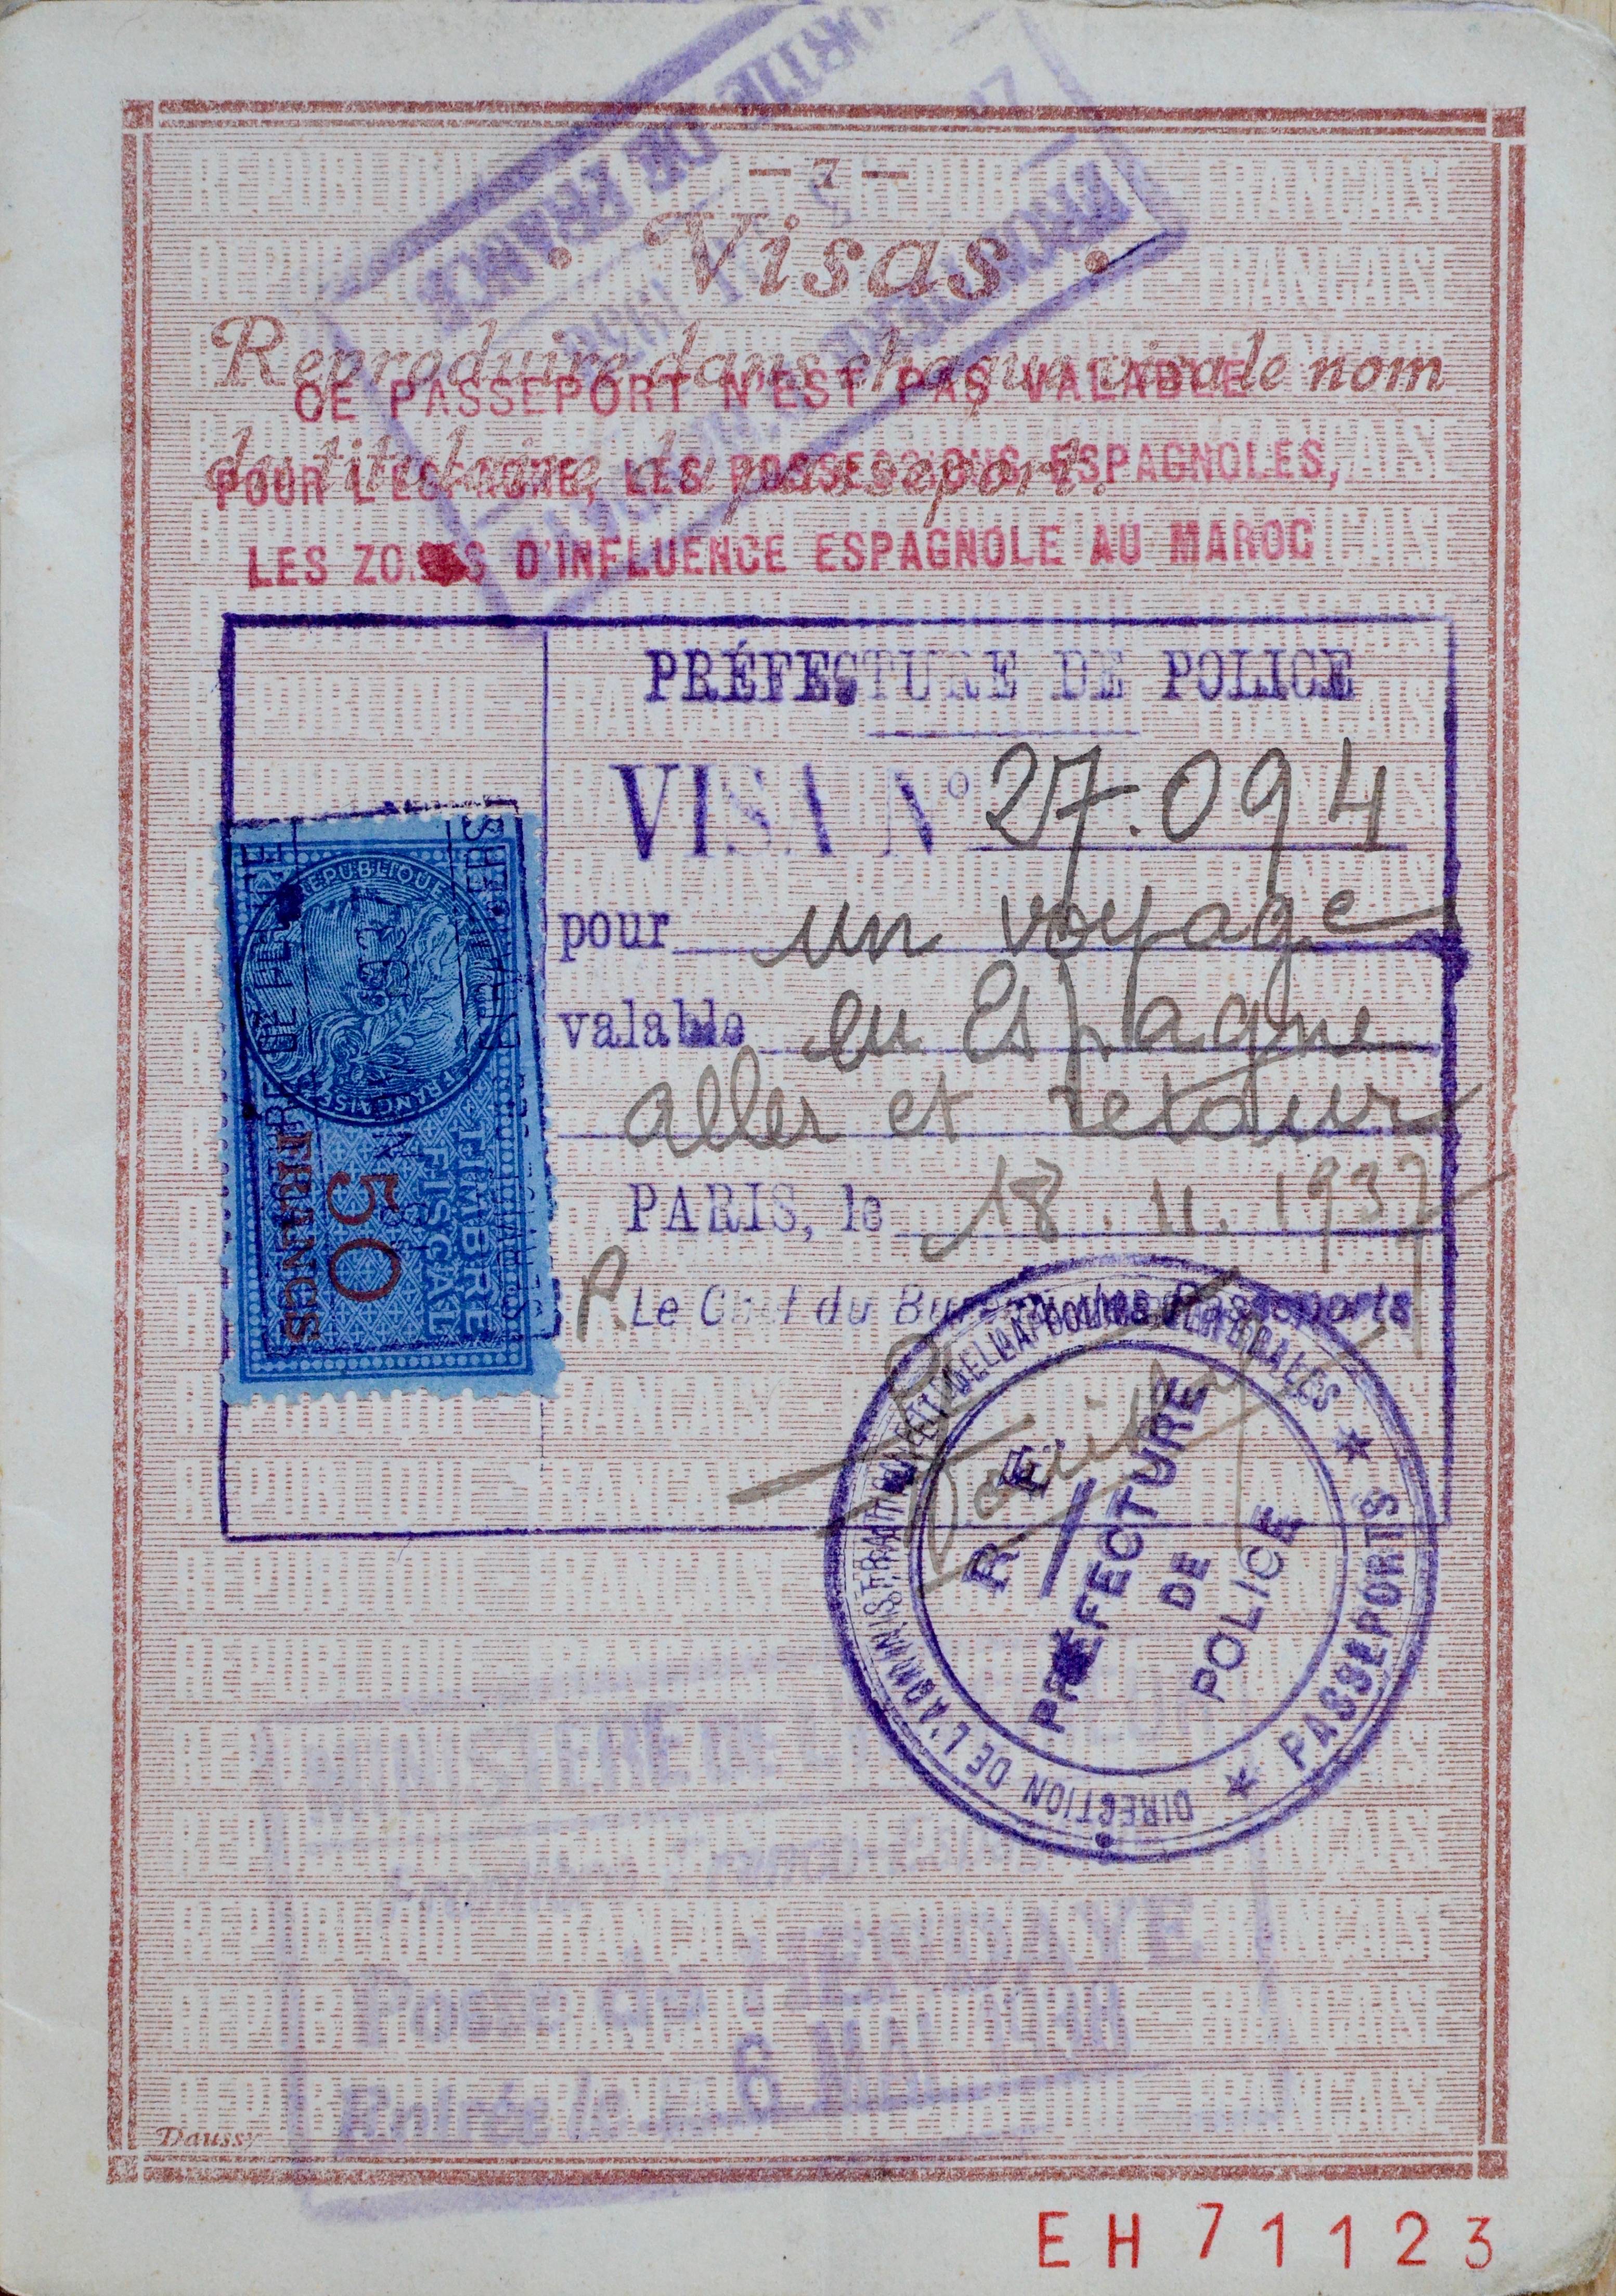 - 7 -
Visas
Reproduire dans chaque visa le nom
du titulaire du passeport.
CE PASSEPORT N'EST PAS VALABLE
POUR L'ESPAGNE, LES POSSESSIONS ESPAGNOLES,
LES ZONES D'INFLUENCE ESPAGNOLE AU MAROC
SORTIE DE FRANCE
PRÉFECTURE DE POLICE
VISA N° 27.094
pour un voyage
valable en Espagne
aller et retour
PARIS, le 18.11.1937
P Le Chef du Bureau des Passeports
RÉPUBLIQUE FRANÇAISE
TIMBRE
FISCAL
50
FRANCS
R F
PRÉFECTURE
DE
POLICE
DIRECTION DE L'ADMINISTRATION ET DE LA POLICE GÉNÉRALES
★ PASSEPORTS ★
MINISTERE DE L'INTERIEUR
Poste de HENDAYE
Entrée le 6 MAI
Daussy
EH 71123